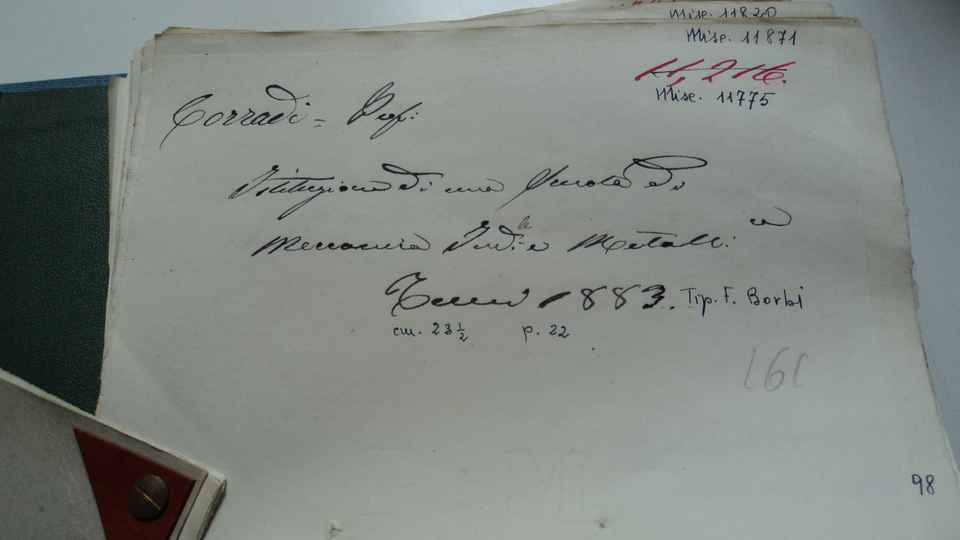 Misc. 11820
Misc. 11871
11,216.
Misc. 11775
Corradi = Prof:
Istituzione di una Scuola di
Meccanica Ind.le e Metalli.ca
Terni 1883. Tip. F. Borbi
cm. 23 1/2 p. 22
161
98